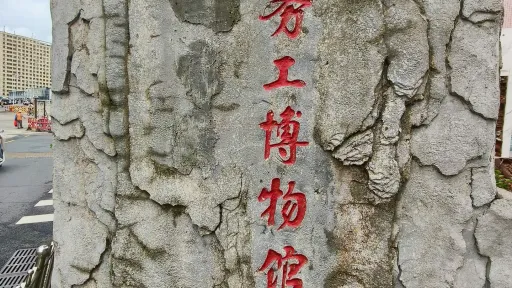 劳工博物馆